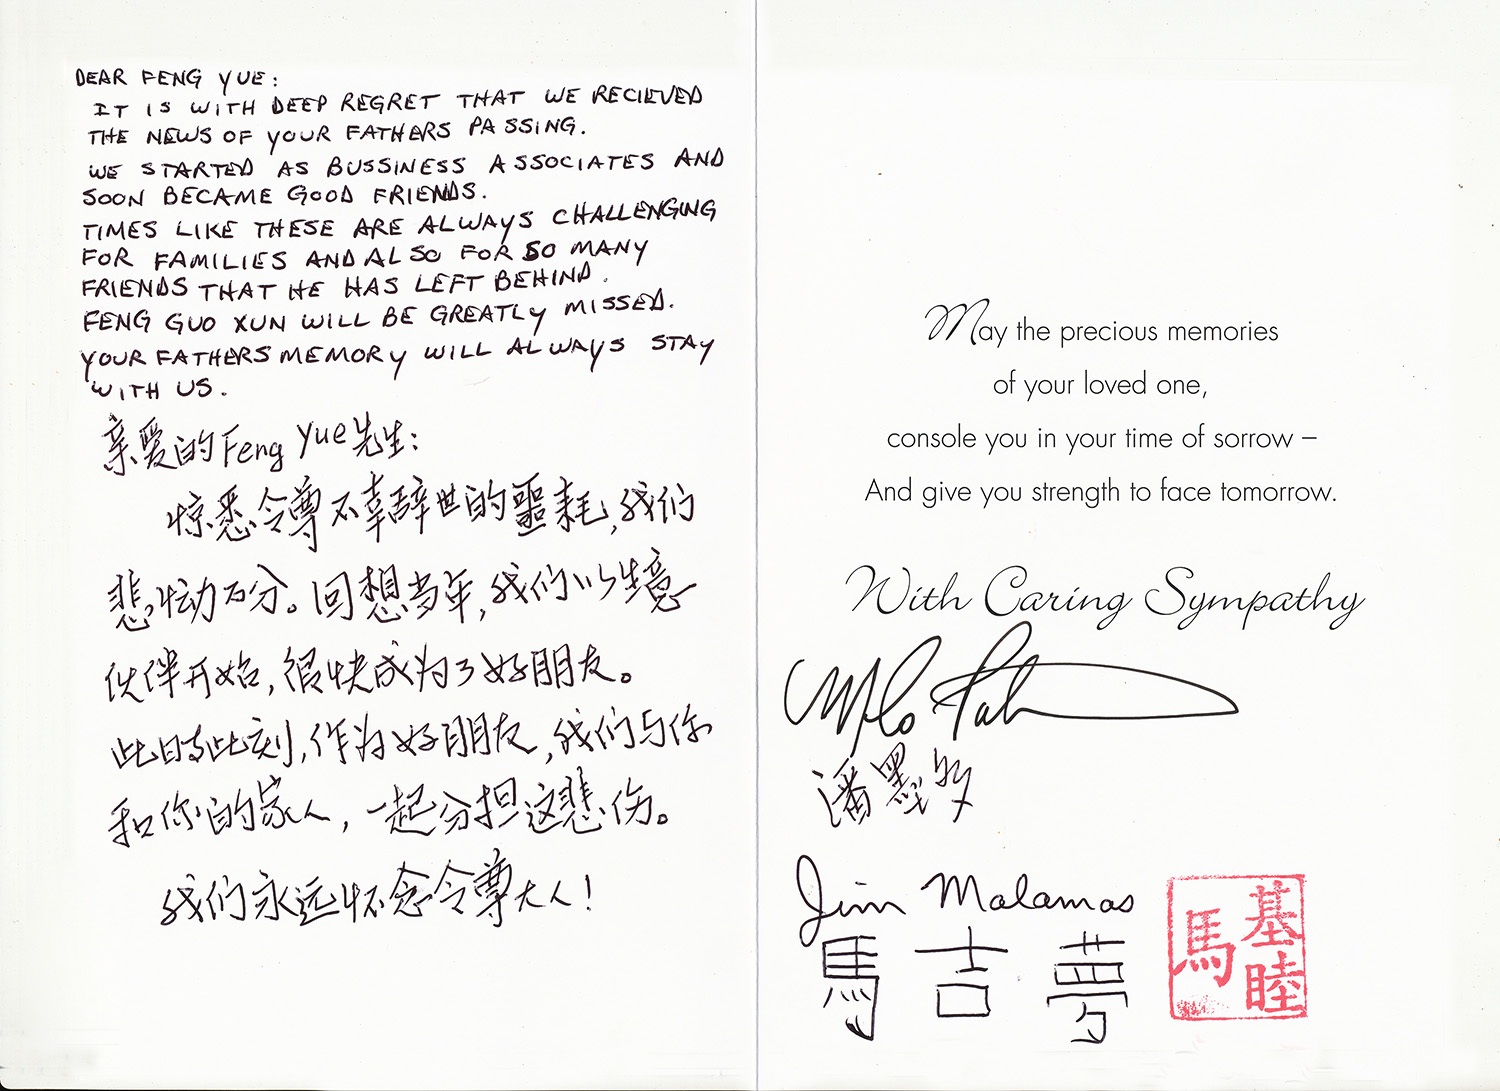 DEAR FENG YUE:
IT IS WITH DEEP REGRET THAT WE RECIEVED
THE NEWS OF YOUR FATHERS PASSING.
WE STARTED AS BUSSINESS ASSOCIATES AND
SOON BECAME GOOD FRIENDS.
TIMES LIKE THESE ARE ALWAYS CHALLENGING
FOR FAMILIES AND ALSO FOR SO MANY
FRIENDS THAT HE HAS LEFT BEHIND.
FENG GUO XUN WILL BE GREATLY MISSED.
YOUR FATHERS MEMORY WILL ALWAYS STAY
WITH US.
亲爱的Feng Yue先生:
惊悉令尊不幸辞世的噩耗,我们
悲恸万分。回想当年,我们以生意
伙伴开始,很快成为了好朋友。
此时此刻,作为好朋友,我们与你
和你的家人,一起分担这悲伤。
我们永远怀念令尊大人!
May the precious memories
of your loved one,
console you in your time of sorrow –
And give you strength to face tomorrow.
With Caring Sympathy
潘墨
Jim Malamas
馬吉夢
基睦
馬